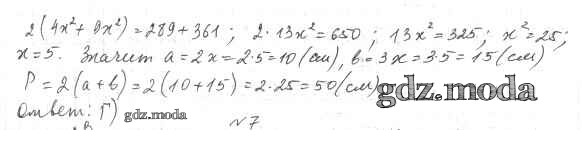 2(4x²+9x²)=289+361; 2·13x²=650; 13x²=325; x²=25;
x=5. Значит a=2x=2·5=10(см), b=3x=3·5=15(см)
P=2(a+b)=2(10+15)=2·25=50(см)
gdz.moda
Ответ: Г)
gdz.moda
№7